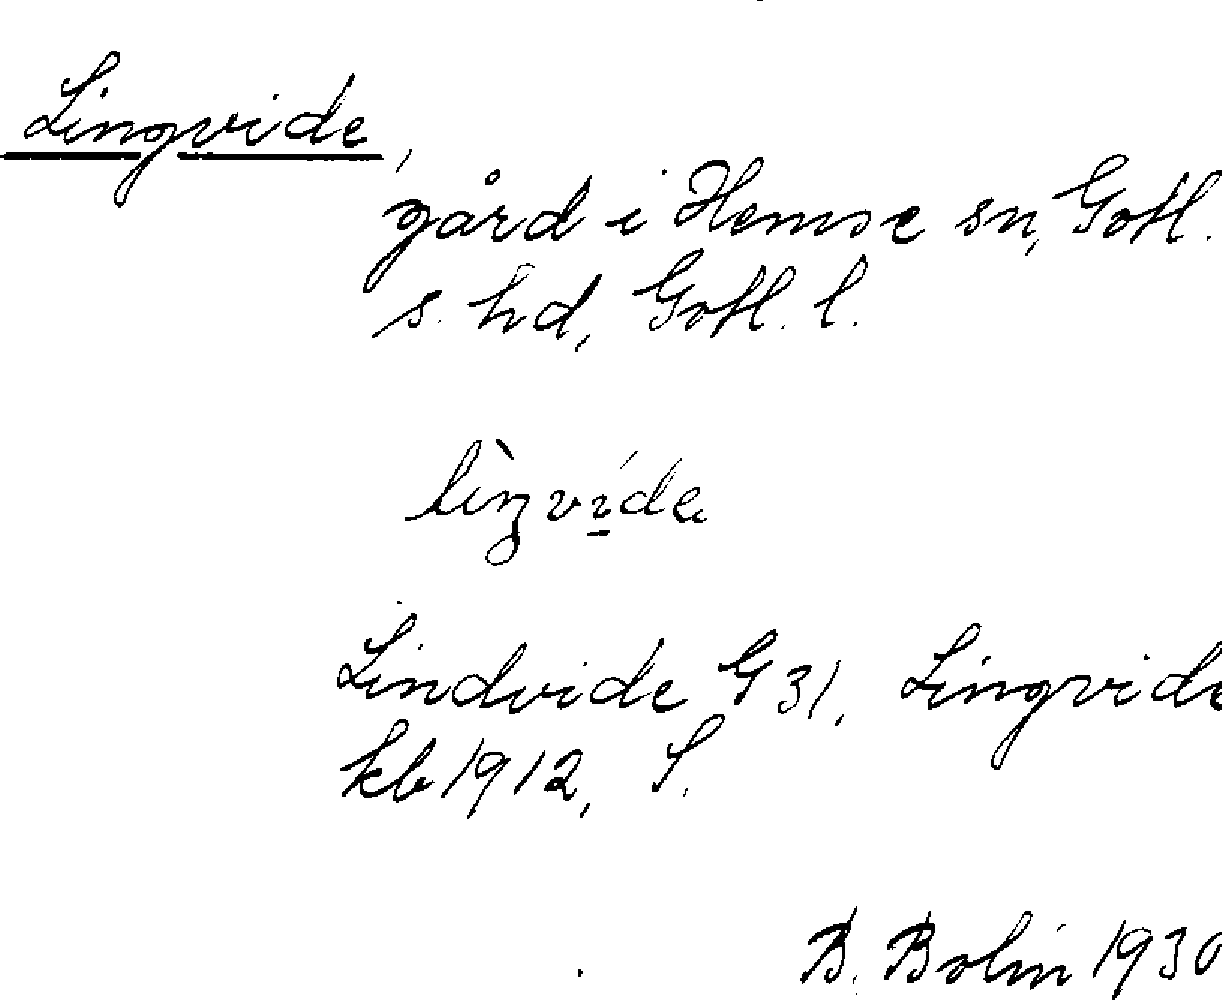 Lingvide,
gård i Hemse sn, Gotl.
s. hd, Gotl. l.
lìŋvíde
Lindvide G 31, Lingvide
kb 1912, S.
B. Bolin 1930